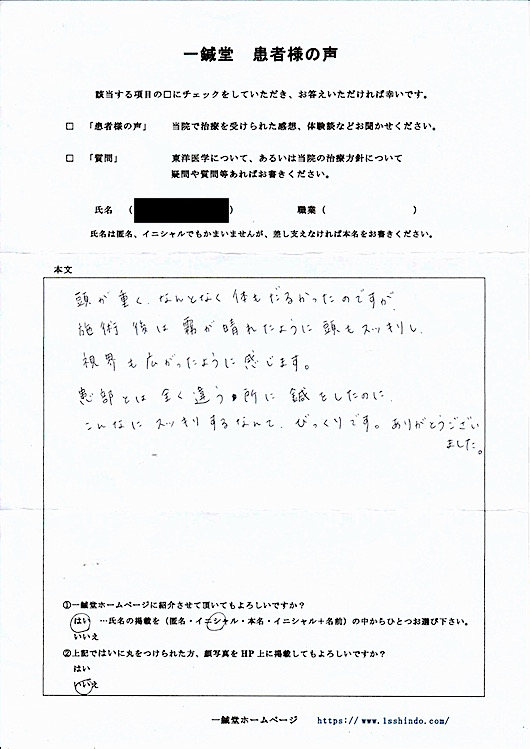 一鍼堂 患者様の声
該当する項目の□にチェックをしていただき、お答えいただければ幸いです。
□ 「患者様の声」 当院で治療を受けられた感想、体験談などお聞かせください。
□ 「質問」 東洋医学について、あるいは当院の治療方針について
疑問や質問等あればお書きください。
氏名 （ ） 職業（ ）
氏名は匿名、イニシャルでもかまいませんが、差し支えなければ本名をお書きください。
本文
頭が重く、なんとなく体もだるかったのですが
施術後は霧が晴れたように頭もスッキリし、
視界も広がったように感じます。
患部とは全く違う所に鍼をしたのに、
こんなにスッキリするなんて、びっくりです。ありがとうござい
ました。
①一鍼堂ホームページに紹介させて頂いてもよろしいですか？
はい …氏名の掲載を（匿名・イニシャル・本名・イニシャル＋名前）の中からひとつお選び下さい。
いいえ
②上記ではいに丸をつけられた方、顔写真をHP上に掲載してもよろしいですか？
はい
いいえ
一鍼堂ホームページ https://www.1sshindo.com/